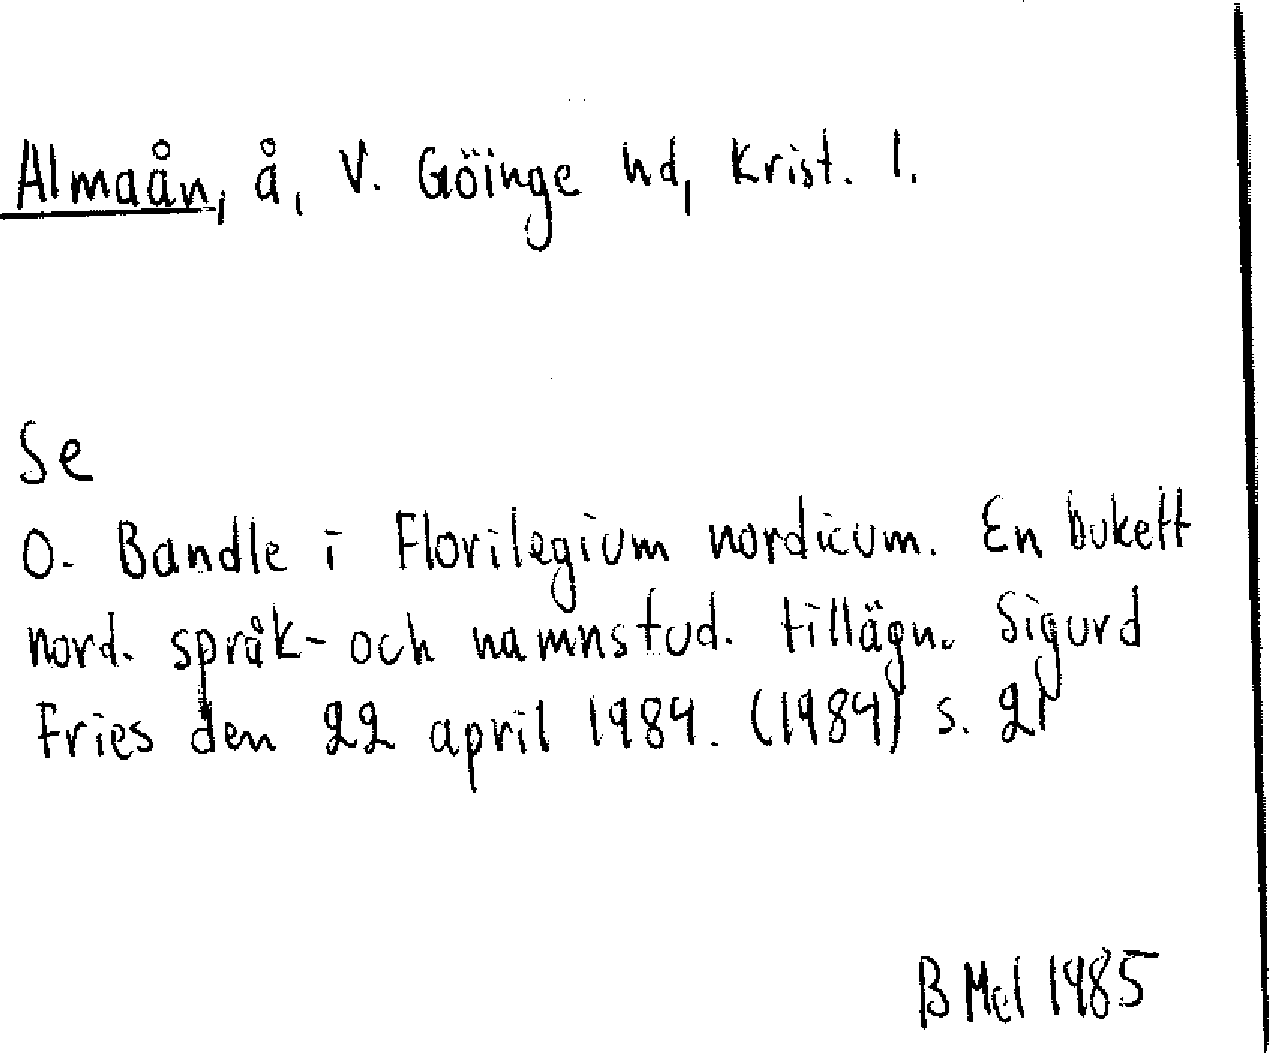 Almaån, å, V. Göinge hd, Krist. l.
Se
O. Bandle i Florilegium nordicum. En bukett
nord. språk- och namnstud. tillägn. Sigurd
Fries den 22 april 1984. (1984) s. 21
B Mel 1985